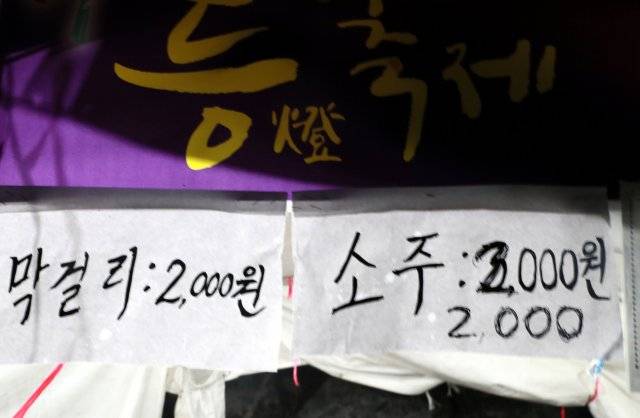 등축제
燈
막걸리:2,000원
소주:3,000원
2,000